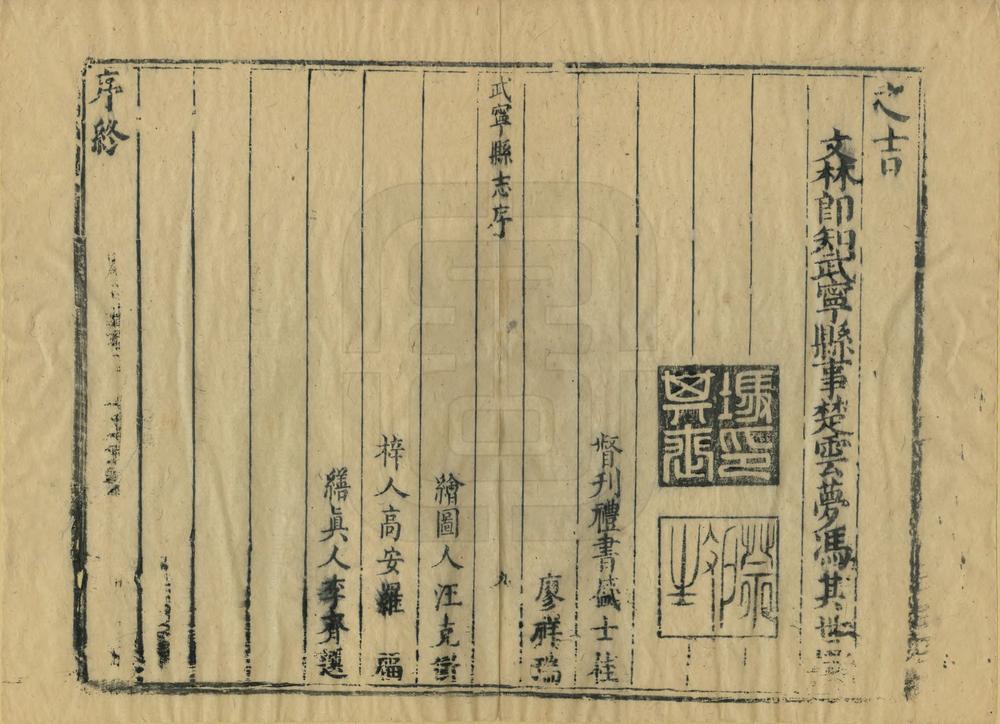 之吉
文林郎知武寧縣事楚雲夢馮其世
督刊禮書盛士桂
廖祥瑞
武寧縣志序
九
繪圖人汪克
梓人高安羅福
繕眞人李齊選
序終